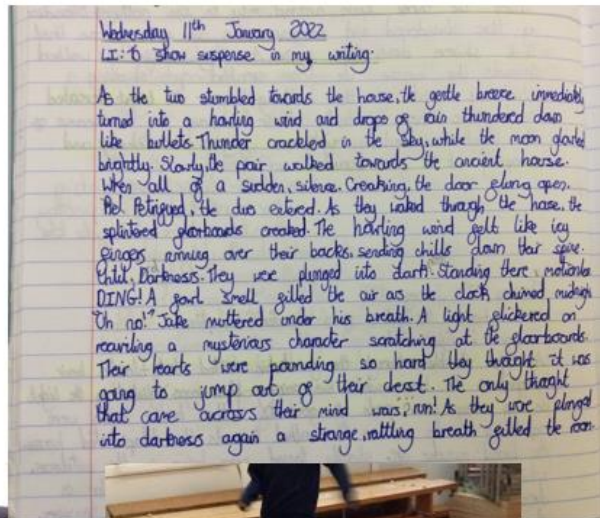 Wednesday 11th January 2022
LI: to show suspense in my writing.
As the two stumbled towards the house, the gentle breeze immediatly
turned into a howling wind and drops of rain thundered down
like bullets. Thunder crackled in the sky, while the moon glowed
brightly. Slowly, the pair walked towards the ancient house.
When all of a sudden, silence. Creaking, the door flung open.
Petrifyed, the duo entered. As they walked through the house, the
splintered floorboards creaked. The howling wind felt like icy
fingers running over their backs, sending chills down their spine.
Until, Darkness. They were plunged into dark. Standing there, motionless
DING! A fowl smell filled the air as the clock chimed midnight
"Oh no!" Jake muttered under his breath. A light flickered on
reaviling a mysterious character scratching at the floorboards.
Their hearts were pounding so hard they thought it was
going to jump out of their chest. The only thought
that came across their mind was, run! As they were plunged
into darkness again a strange, rattling breath filled the room.